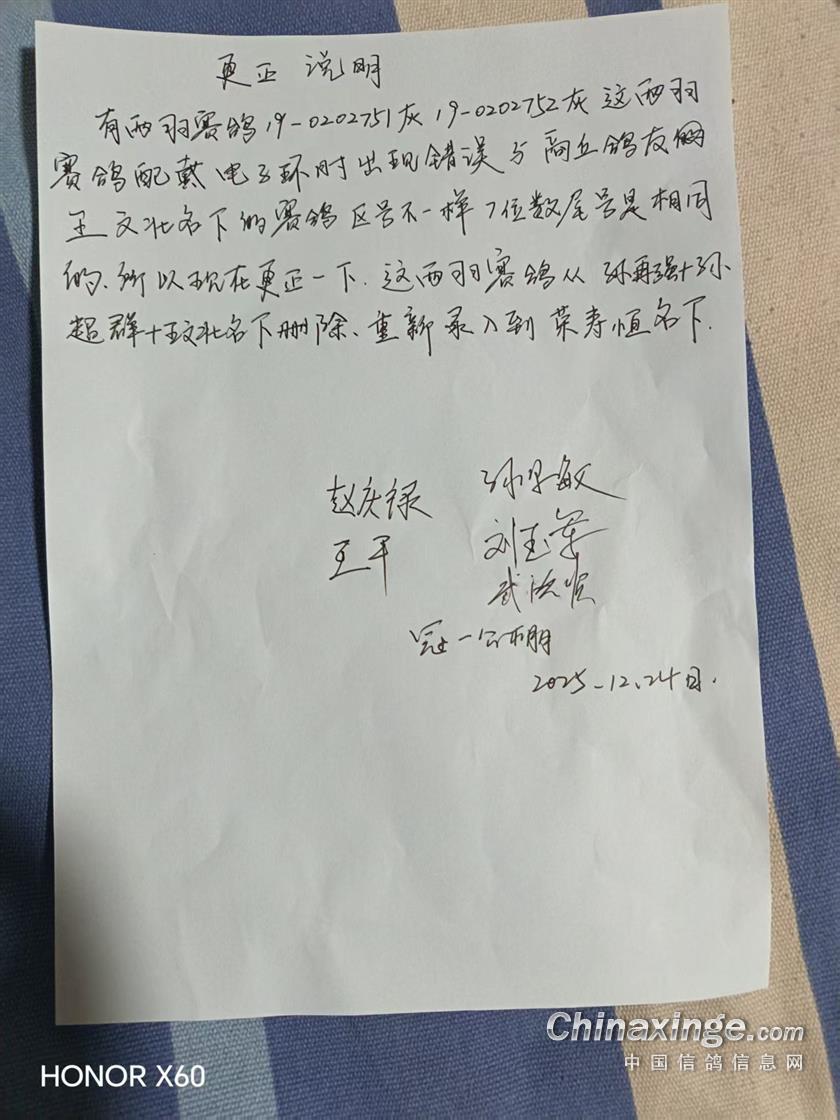 更正 说明
有两羽赛鸽19-0202751灰19-0202752灰这两羽
赛鸽配戴电子环时出现错误与商丘鸽友
王文壮名下的赛鸽区号不一样7位数尾号是相同
的、所以现在更正一下.这两羽赛鸽从孙再强+孙
超群+王文壮名下删除、重新录入到荣寿恒名下.
赵庆禄 孙 敏
王军 刘玉荣
武
冠一公棚
2025-12.24日.
Chinaxinge.com
中国信鸽信息网
HONOR X60